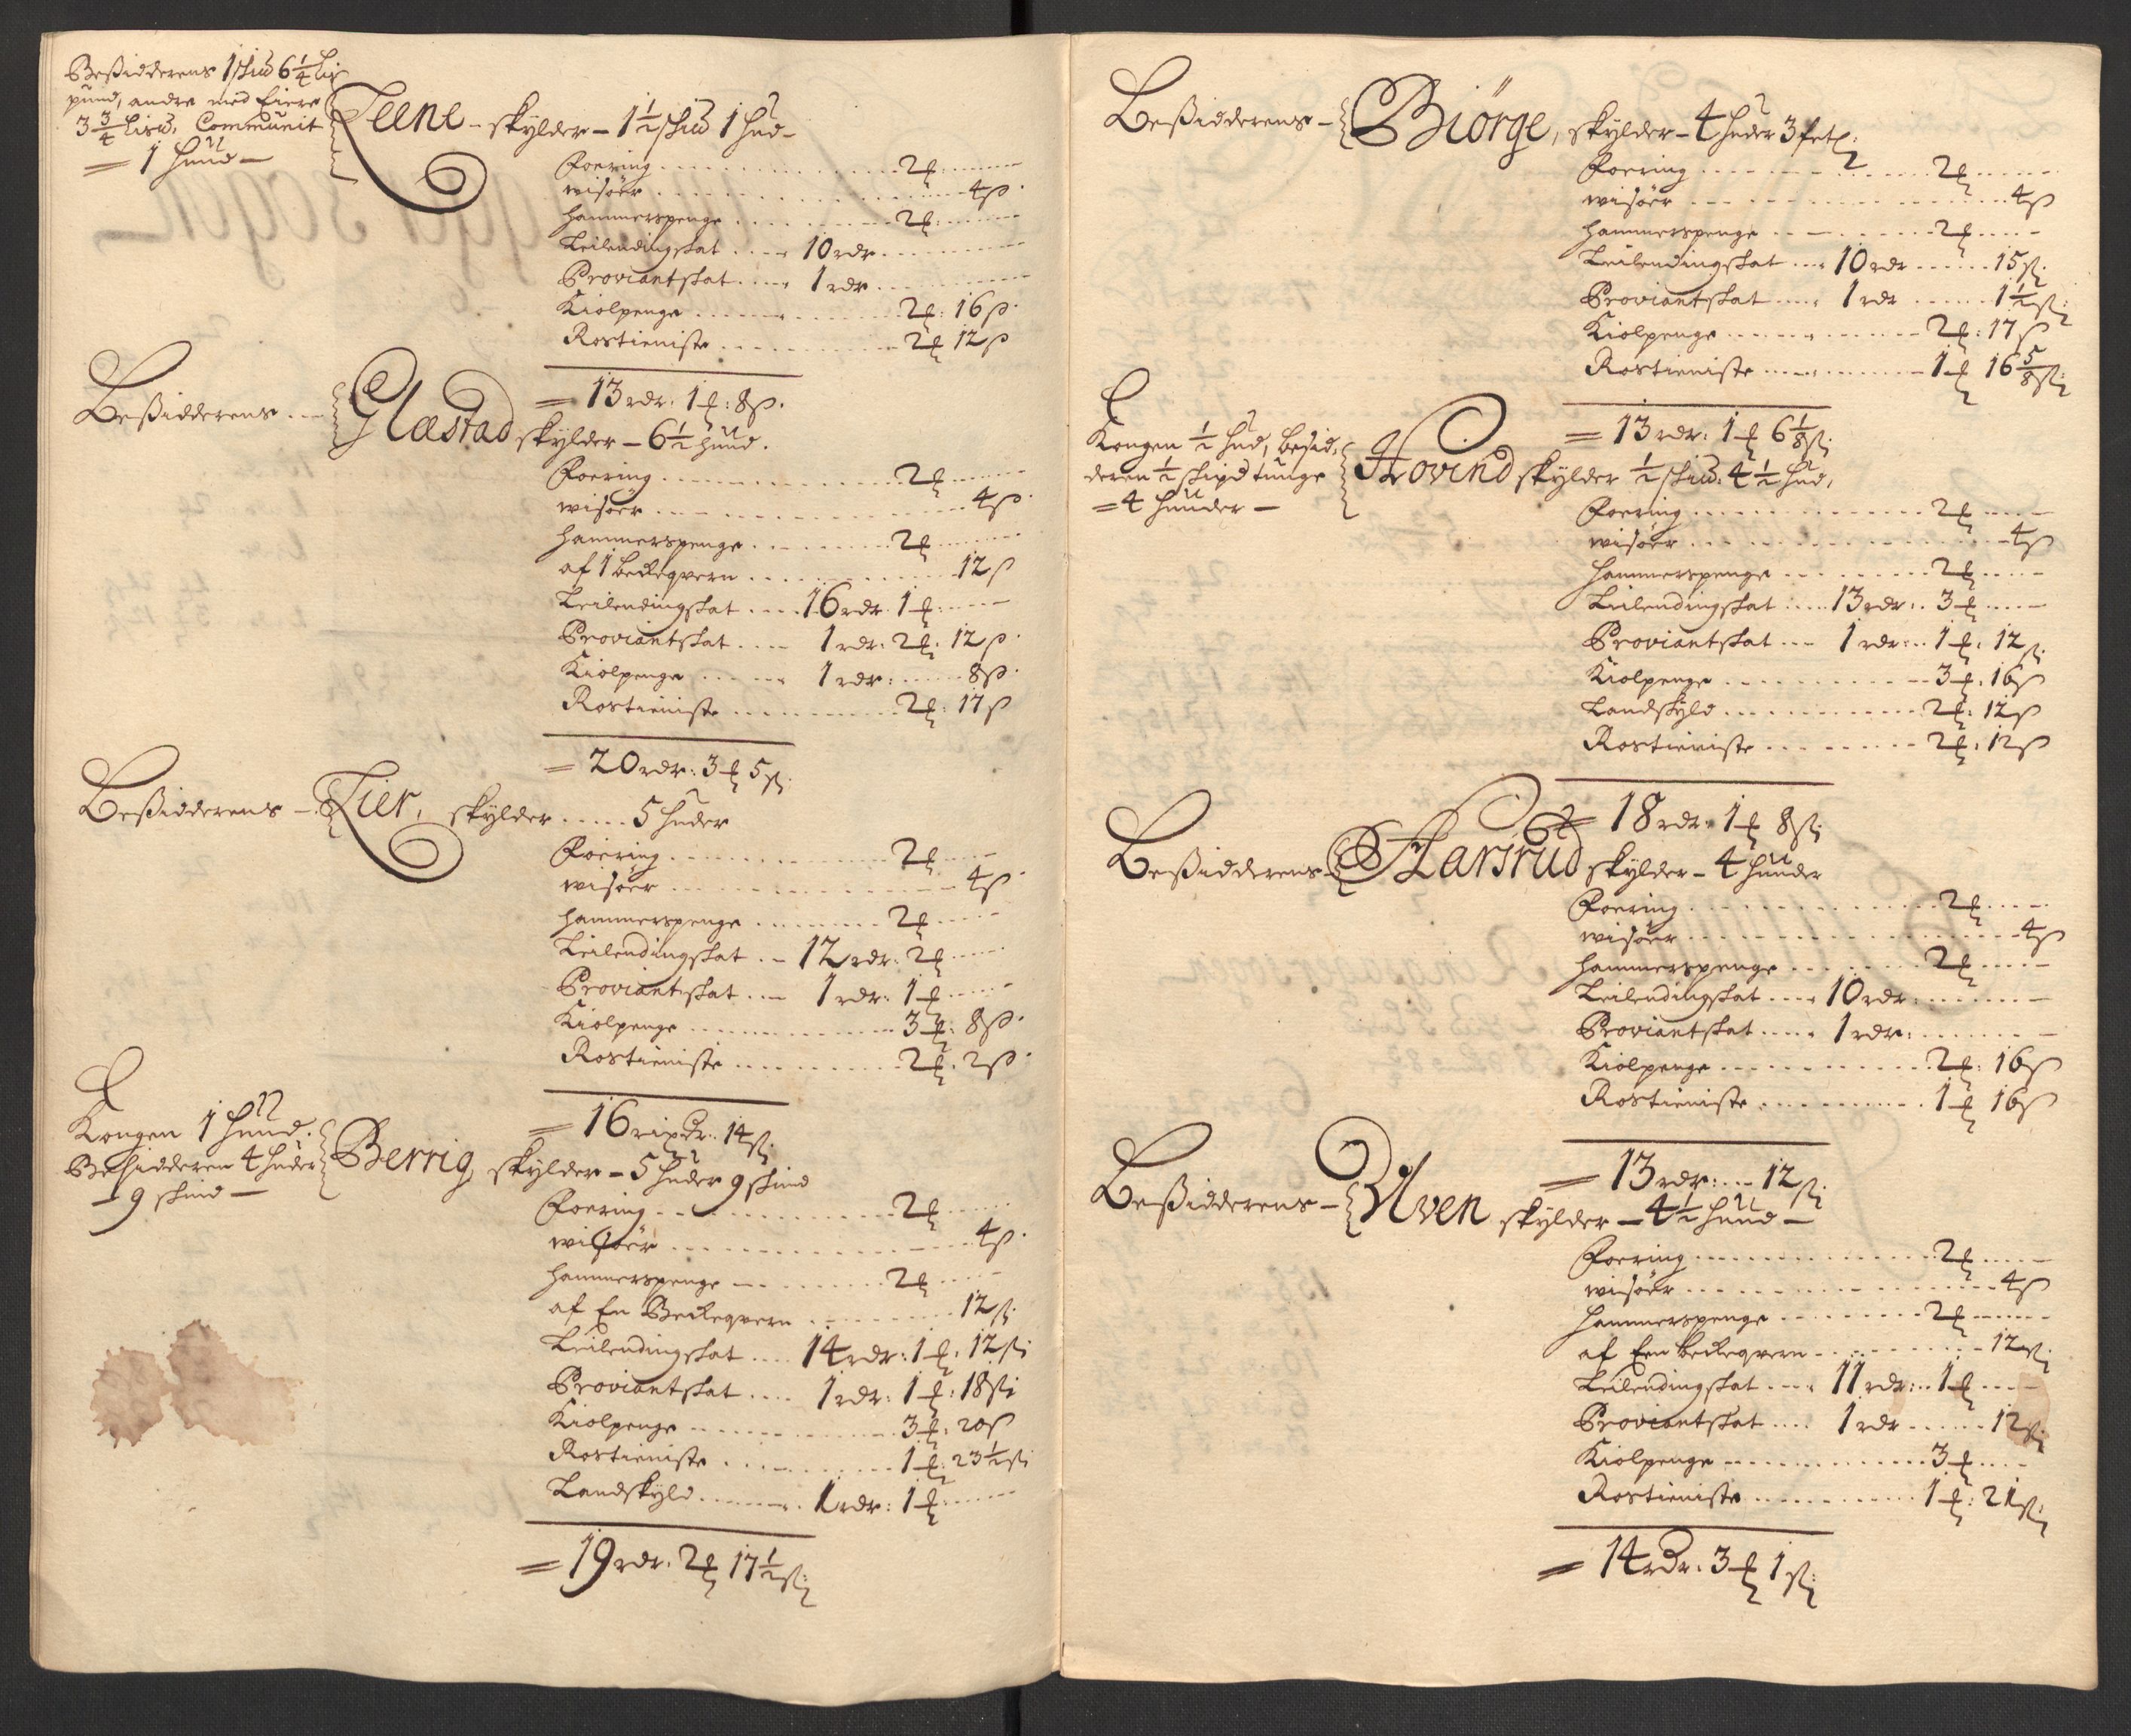 Beßidderens 1 skiid 6 1/4 Lis
pund, andre med Eiere
3 3/4 Lisd. Communit
= 1 huud —
Teene - skylder - 1 1/2 skiid 1 hud -
Foering 2 ℔
wisøer 4 ß
hammerspenge 2 ℔
Leilendingskat 10 rdr
Proviantskat 1 rdr
Kiolpenge 2 ℔: 16 ß
Rostieniste 2 ℔ 12 ß
= 13 rdr: 1 ℔: 8 ß
Beßidderens - Glæstad skylder - 6 1/2 huud.
Foering 2 ℔
wisøer 4 ß
hammerspenge 2 ℔
af 1 Beckeqvern 12 ß
Leilendingskat 16 rdr 1 ℔
Proviantskat 1 rdr: 2 ℔: 12 ß
Kiolpenge 1 rdr: 8 ß
Rostieniste 2 ℔: 17 ß
= 20 rdr: 3 ℔ 5 ß:
Beßidderens - Lier, skylder 5 huder
Foering 2 ℔
wisøer 4 ß
hammerspenge 2 ℔
Leilendingskat 12 rdr: 2 ℔
Proviantskat 1 rdr: 1 ℔
Kiolpenge 3 ℔: 8 ß
Rostieniste 2 ℔: 2 ß
= 16 ripdr: 14 ß:
Kongen 1 huud.
Besidderen 4 huder
- 9 skind -
Berrig, skylder - 5 huder 9 skind
Foering 2 ℔
wisøer 4 ß
hammerspenge 2 ℔
af En Beckeqvern 12 ß
Leilendingskat 14 rdr: 1 ℔: 12 ß
Proviantskat 1 rdr: 1 ℔: 18 ß
Kiolpenge 3 ℔: 20 ß
Rostieniste 1 ℔: 23 1/2 ß
Landskyld 1 rdr: 1 ℔
= 19 rdr: 2 ℔ 17 1/2 ß:
Beßidderens - Biörge, skylder - 4 huder 3 fetl:
Foering 2 ℔
wisøer 4 ß
hammerspenge 2 ℔
Leilendingskat 10 rdr 15 ß:
Proviantskat 1 rdr 1 1/2 ß:
Kiolpenge 2 ℔: 17 ß
Rostieniste 1 ℔ 16 5/8 ß:
= 13 rdr: 1 ℔ 6 1/8 ß:
Kongen 1/2 hud, besid,
deren 1/2 skipd tunge
= 4 huuder -
Hovind skylder 1/2 skiid: 4 1/2 hud,
Foering 2 ℔
wisøer 4 ß
hammerspenge 2 ℔
Leilendingskat 13 rdr: 3 ℔
Proviantskat 1 rdr: 1 ℔: 12 ß:
Kiolpenge 3 ℔: 16 ß
Landskyld 2 ℔: 12 ß
Rostieniste 2 ℔: 12 ß
= 18 rdr: 1 ℔ 8 ß:
Beßidderens - Harsrud skylder - 4 huuder
Foering 2 ℔
wisøer 4 ß
hammerspenge 2 ℔
Leilendingskat 10 rdr:
Proviantskat 1 rdr:
Kiolpenge 2 ℔: 16 ß
Rostieniste 1 ℔ 16 ß
= 13 rdr: 12 ß:
Beßidderens - Ulven skylder - 4 1/2 huud -
Foering 2 ℔
wisøer 4 ß
hammerspenge 2 ℔
af Een Beckeqvern 12 ß:
Leilendingskat 11 rdr: 1 ℔
Proviantskat 1 rdr 12 ß:
Kiolpenge 3 ℔
Rostieniste 1 ℔: 21 ß:
= 14 rdr: 3 ℔ 1 ß: